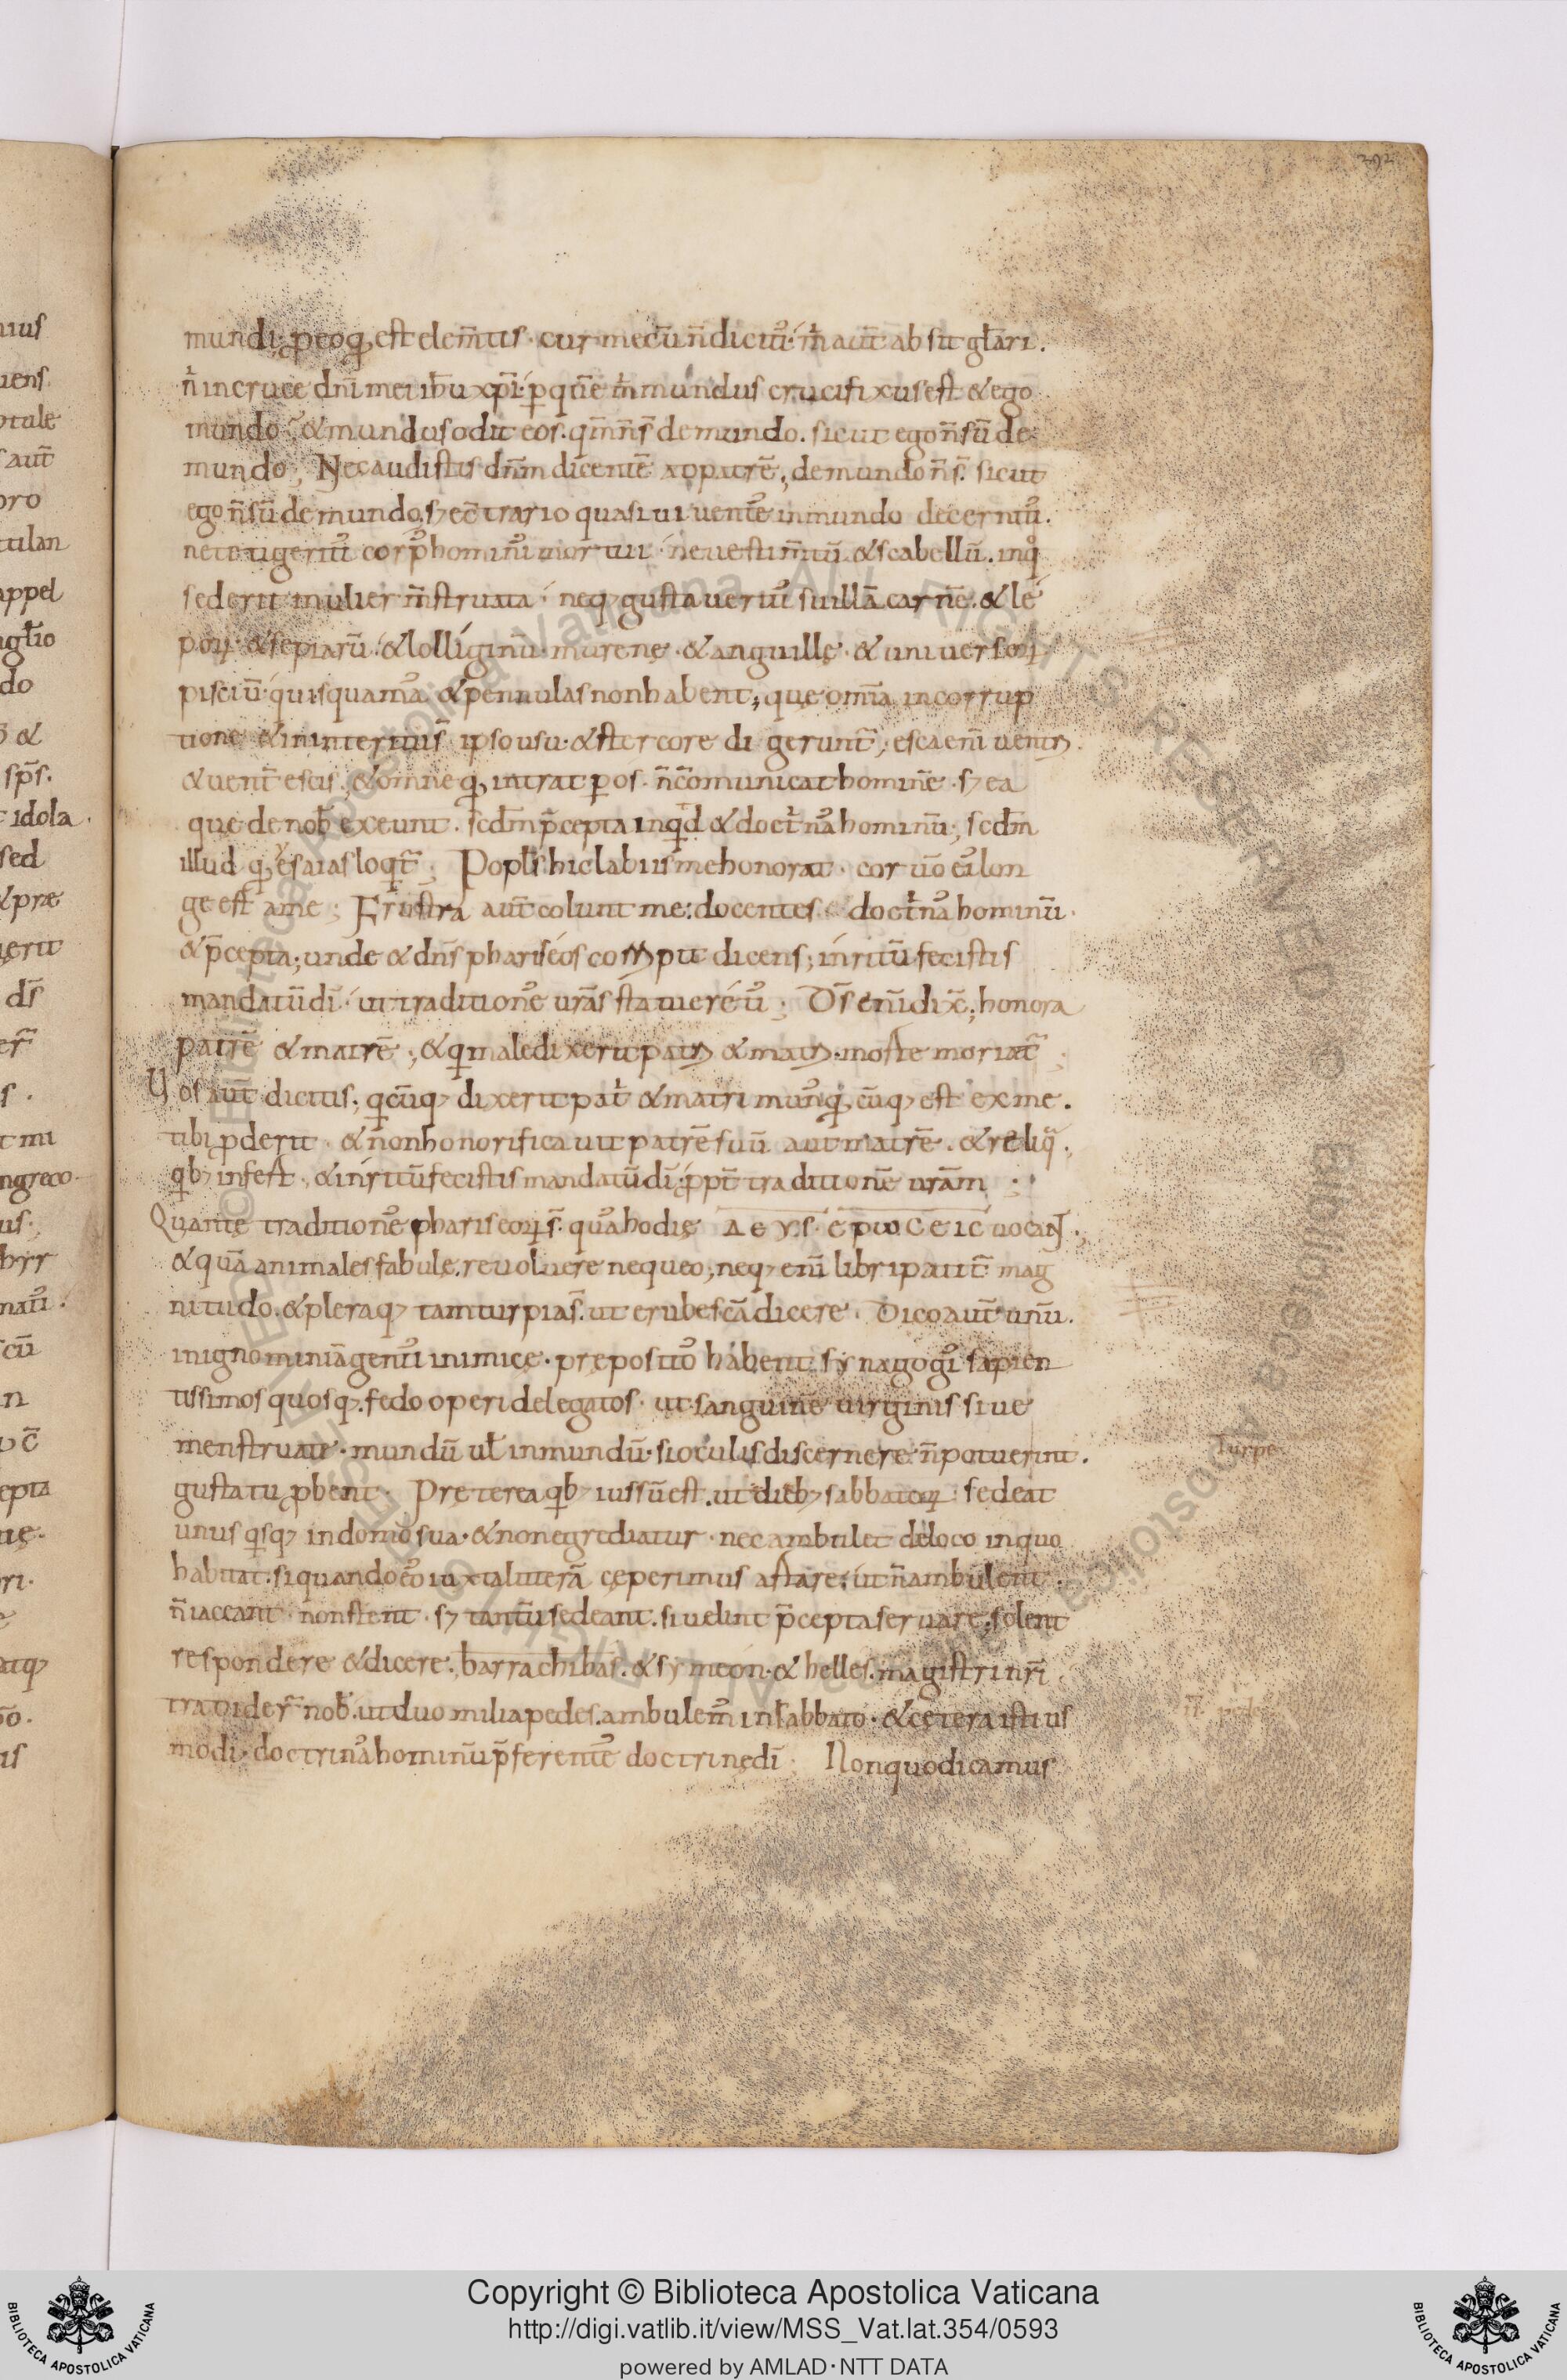 292
mundi. p eoq, est elem̄tis. cur mecū n̄ dicitī. m̄ aut̄ absit gl̄ari.
n̄ in cruce dn̄i mei ih̄u xp̄i. p quē m̄ mundus crucifixus est & ego
mundo. & mundus odit eos. q̄ īn̄ s̄ de mundo. sicut ego n̄ sū de
mundo; Nec audistis dn̄m dicentē ad patrē, de mundo n̄ s̄. sicut
ego n̄ sū de mundo, sꝫ ec̄trario quasi uiuentē in mundo decernitī.
ne tetigeritī corp̄ hominū mortui. ne uestim̄tū & scabellū. inq̊
sederit mulier m̄struata. neqꝫ gustaueritī suillā carnē. & le
porꝝ. & sepiarū. & lolliginū. murenę. & anguillę. & uniuersorꝝ
pisciū. qui squamā & pennulas non habent; quę om̄ia in corrup
tione & in interitu s̄ ipso usu. & stercore digerunt̄; esca enī uentꝝ.
& uent̄ escis. & omne q, intrat p os. n̄ c̄omunicat hominē. sꝫ ea
quę de nob̄ exeunt. sedm̄ p̄cepta inq̇d & doct̓nā hominū; sedm̄
illud q, esaias loqt̄; Popl̄s hic labiis me honorat. cor ūo eī lon
ge est a me; Frustra aut̄ colunt me: docentes doct̓nā hominū.
& p̄cepta; unde & dn̄s phariseos corripit dicens; inritū fecistis
mandatū dī. ut traditionē ur̄as statueretī; Ds̄ enī dix̄; honora
patrē & matrē; & qi maledixerit patꝝ & matꝝ. morte moriat̄;
Uos aut̄ dicitis; qcūqꝫ dixerit pat̓ & matri munꝰ q, cūqꝫ est ex me.
tibi p̄derit. & n̄ honorificauit patrē suū aut matrē. & reliq̄.
qbꝫ infest. & inritū fecistis mandatū dī. ppt̄ traditionē urām;
Quantę traditionē phariseorꝝ s̄. quā hodię ΔΕΥS.ΕΡωCΕΙC uocant;
& quā aniles fabulę. reuoluere nequeo; neqꝫ enī libri patit̄ mag
nitudo. & pleraqꝫ tam turpia s̄. ut erubescā dicere. Dico aut̄ unū.
in ignominiā gentī inimicę. prępositō habent synagogī sapien
tissimos quosqꝫ. fedo operi delegatos. ut sanguinē uirginis siue
menstruatę. mundū ul̄ inmundū. si oculis discernere n̄ potuerint.
gustatu pbent. Pręterea qbꝫ iussū est. ut diebꝫ sabbatorꝝ. sedeat
unus qsqꝫ in domo sua. & non egrediatur. nec ambulet de loco in quo
habitat. si quando eō iuxta litterā cęperimus astare. ut n̄ ambulent.
n̄ iaceant. non stent. sꝫ tantū sedeant. si uelint p̄cepta seruare; solent
respondere & dicere; barrachibas. & symeon. & helles. magistri nr̄i
tradider̄ nob̄. ut duo milia pedes. ambulem̄ in sabbato. & cętera istius
modi. doctrinā hominū p̄ferentē doctrinę dī. Non quo dicamus
Turpe
Copyright © Biblioteca Apostolica Vaticana
http://digi.vatlib.it/view/MSS_Vat.lat.354/0593
powered by AMLAD·NTT DATA
BIBLIOTECA APOSTOLICA VATICANA
BIBLIOTECA APOSTOLICA VATICANA